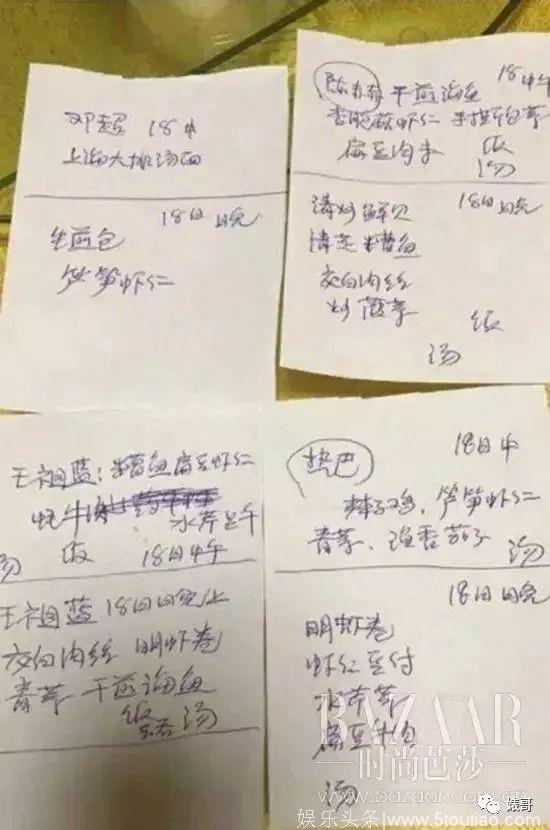 邓超 18中
上海大排汤面
18日晚
生煎包
竹笋虾仁
18中午
干煎海鱼
虾仁
饭
汤
清炒鲜贝 18日晚
清蒸糟鱼
茭白肉丝
炒菠菜 饭
汤
王祖蓝：糟鱼扁豆虾仁
水芹豆干
汤 饭 18日中午
王祖蓝 18日日晚上
茭白肉丝 明虾卷
青菜 干煎海鱼
饭 汤
热巴 18日中
辣子鸡、竹笋虾仁
青菜、鱼香茄子 汤
18日晚
明虾卷
虾仁豆付
水芹菜
扁豆
汤
BAZAAR
时尚芭莎
www.bazaar.com.cn
婊哥
娱乐头条|www.5toutiao.com